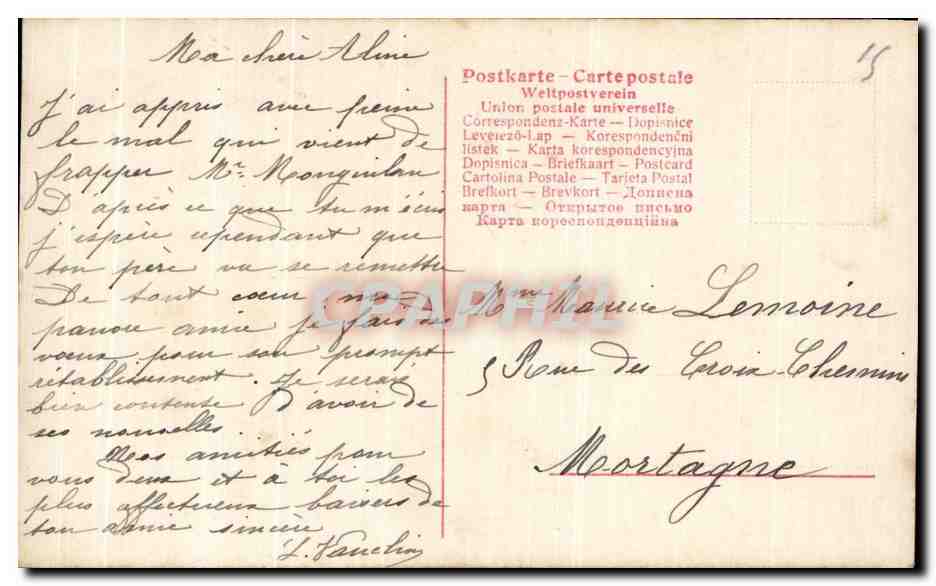 Ma chère Aline
J'ai appris avec peine
le mal qui vient de
frapper Mr.
D'après ce que tu m'écris
j'espère cependant que
ton père va se remettre
De tout cœur, ma
pauvre amie je fais des
vœux pour son prompt
rétablissement. Je serais
bien contente d'avoir de
ses nouvelles.
Mes amitiés pour
vous deux et à toi les
plus affectueux baisers de
ton amie sincère
L. Vauclin
15
Postkarte – Carte postale
Weltpostverein
Union postale universelle
Correspondenz-Karte – Dopisnice
Levelező-Lap – Korespondenční
lístek – Karta korespondencyjna
Dopisnica – Briefkaart – Postcard
Cartolina Postale – Tarjeta Postal
Brefkort – Brevkort – Дописна
карта – Открытое письмо
Карта кореспонденційна
CPAPHIL
Mme Maurice Lemoine
5 Rue des Croix-Chemins
Mortagne